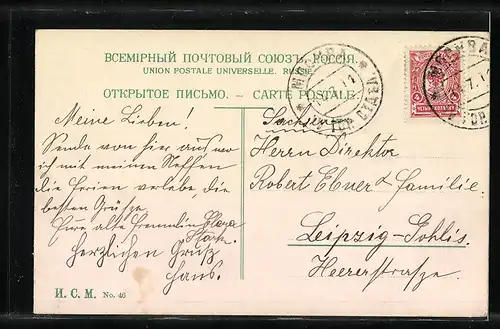 ВСЕМІРНЫЙ ПОЧТОВЫЙ СОЮЗЪ. РОССІЯ.
UNION POSTALE UNIVERSELLE. RUSSIE
ОТКРЫТОЕ ПИСЬМО. — CARTE POSTALE
МОСКВА
МОСКВА
Meine Lieben!
Sende von hier aus wo
ich mit meinen Neffen
die Ferien verlebe, die
besten Grüße.
Eure alte Freundin
Herzlichen Gruß
Hans.
Sachsen
Herrn Direktor
Robert Ebner & Familie.
Leipzig-Gohlis.
Heererstrasse.
И. С. М. No. 46